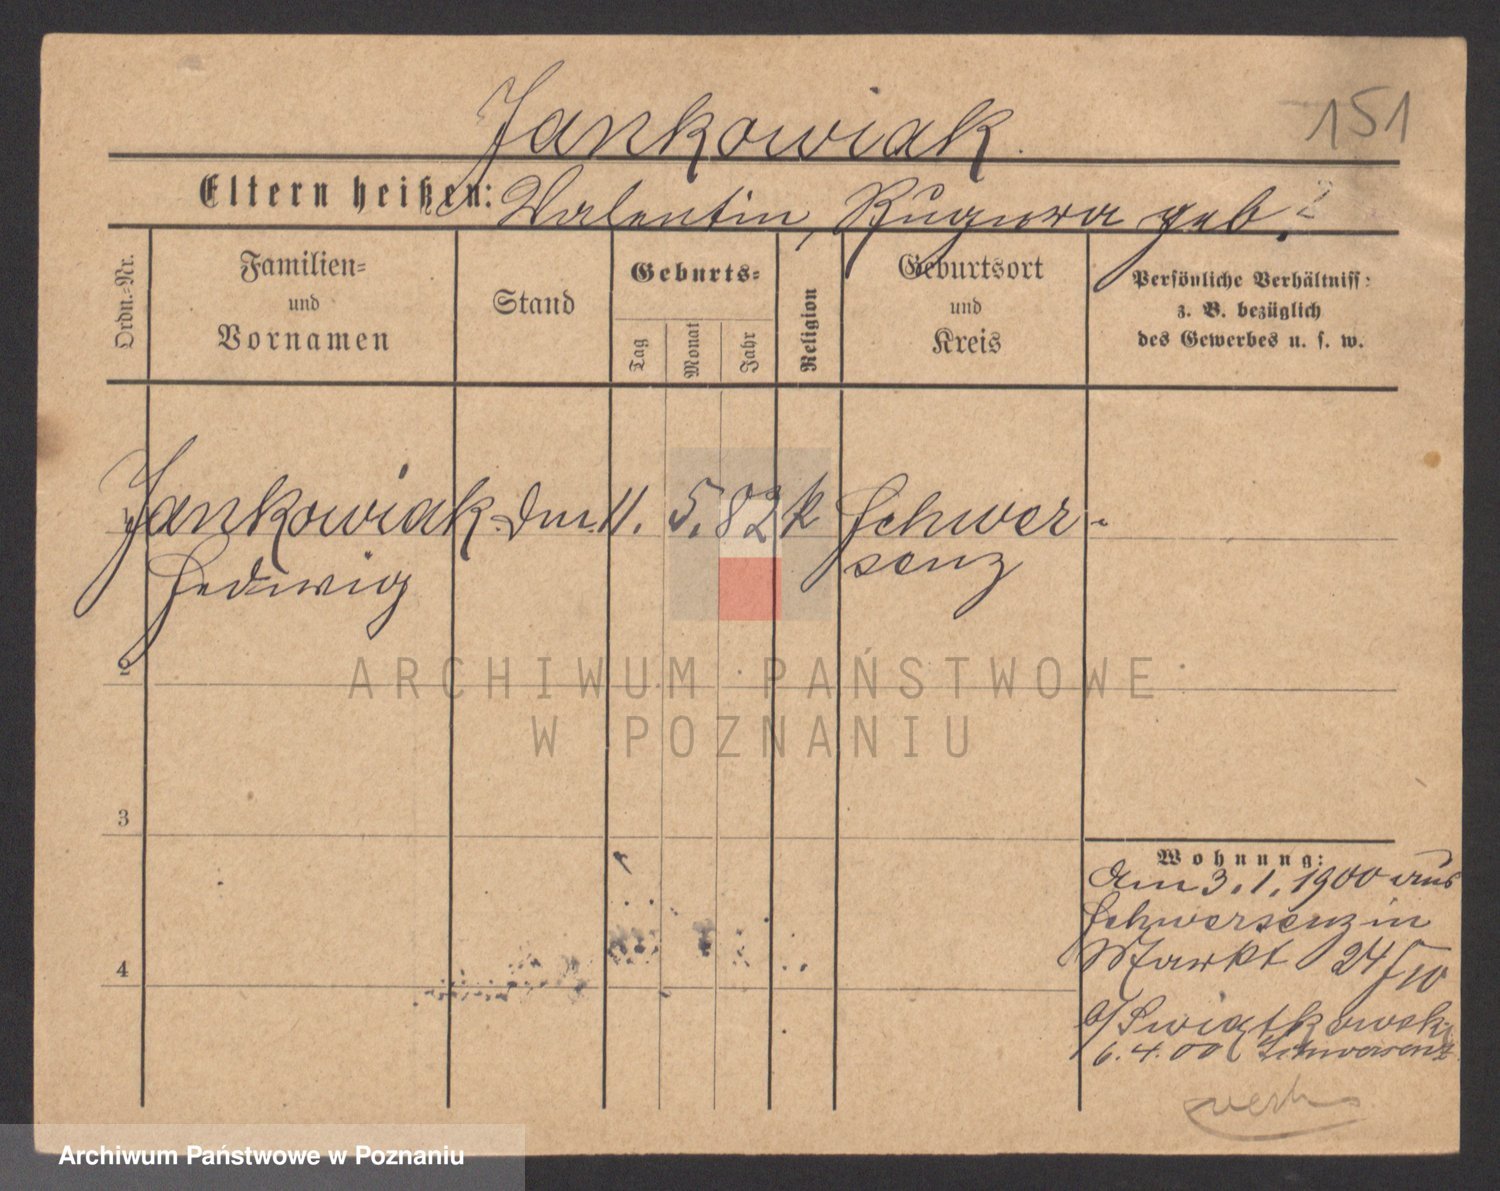 Jankowiak
151
Eltern heißen: Valentin, geb. ?
Ordn.=Nr.
Familien=
und
Vornamen
Stand
Geburts=
Tag
Monat
Jahr
Religion
Geburtsort
und
Kreis
Persönliche Verhältniss:
z. B. bezüglich
des Gewerbes u. s. w.
Jankowiak 11. 5. 82 k Schwer-
Hedwig senz
ARCHIWUM PAŃSTWOWE
W POZNANIU
2
3
4
Wohnung:
Am 3. 1. 1900 aus
Schwersenz in
Markt 24/10
b/Swiątkowski
6. 4. 00 Schwersenz
Archiwum Państwowe w Poznaniu